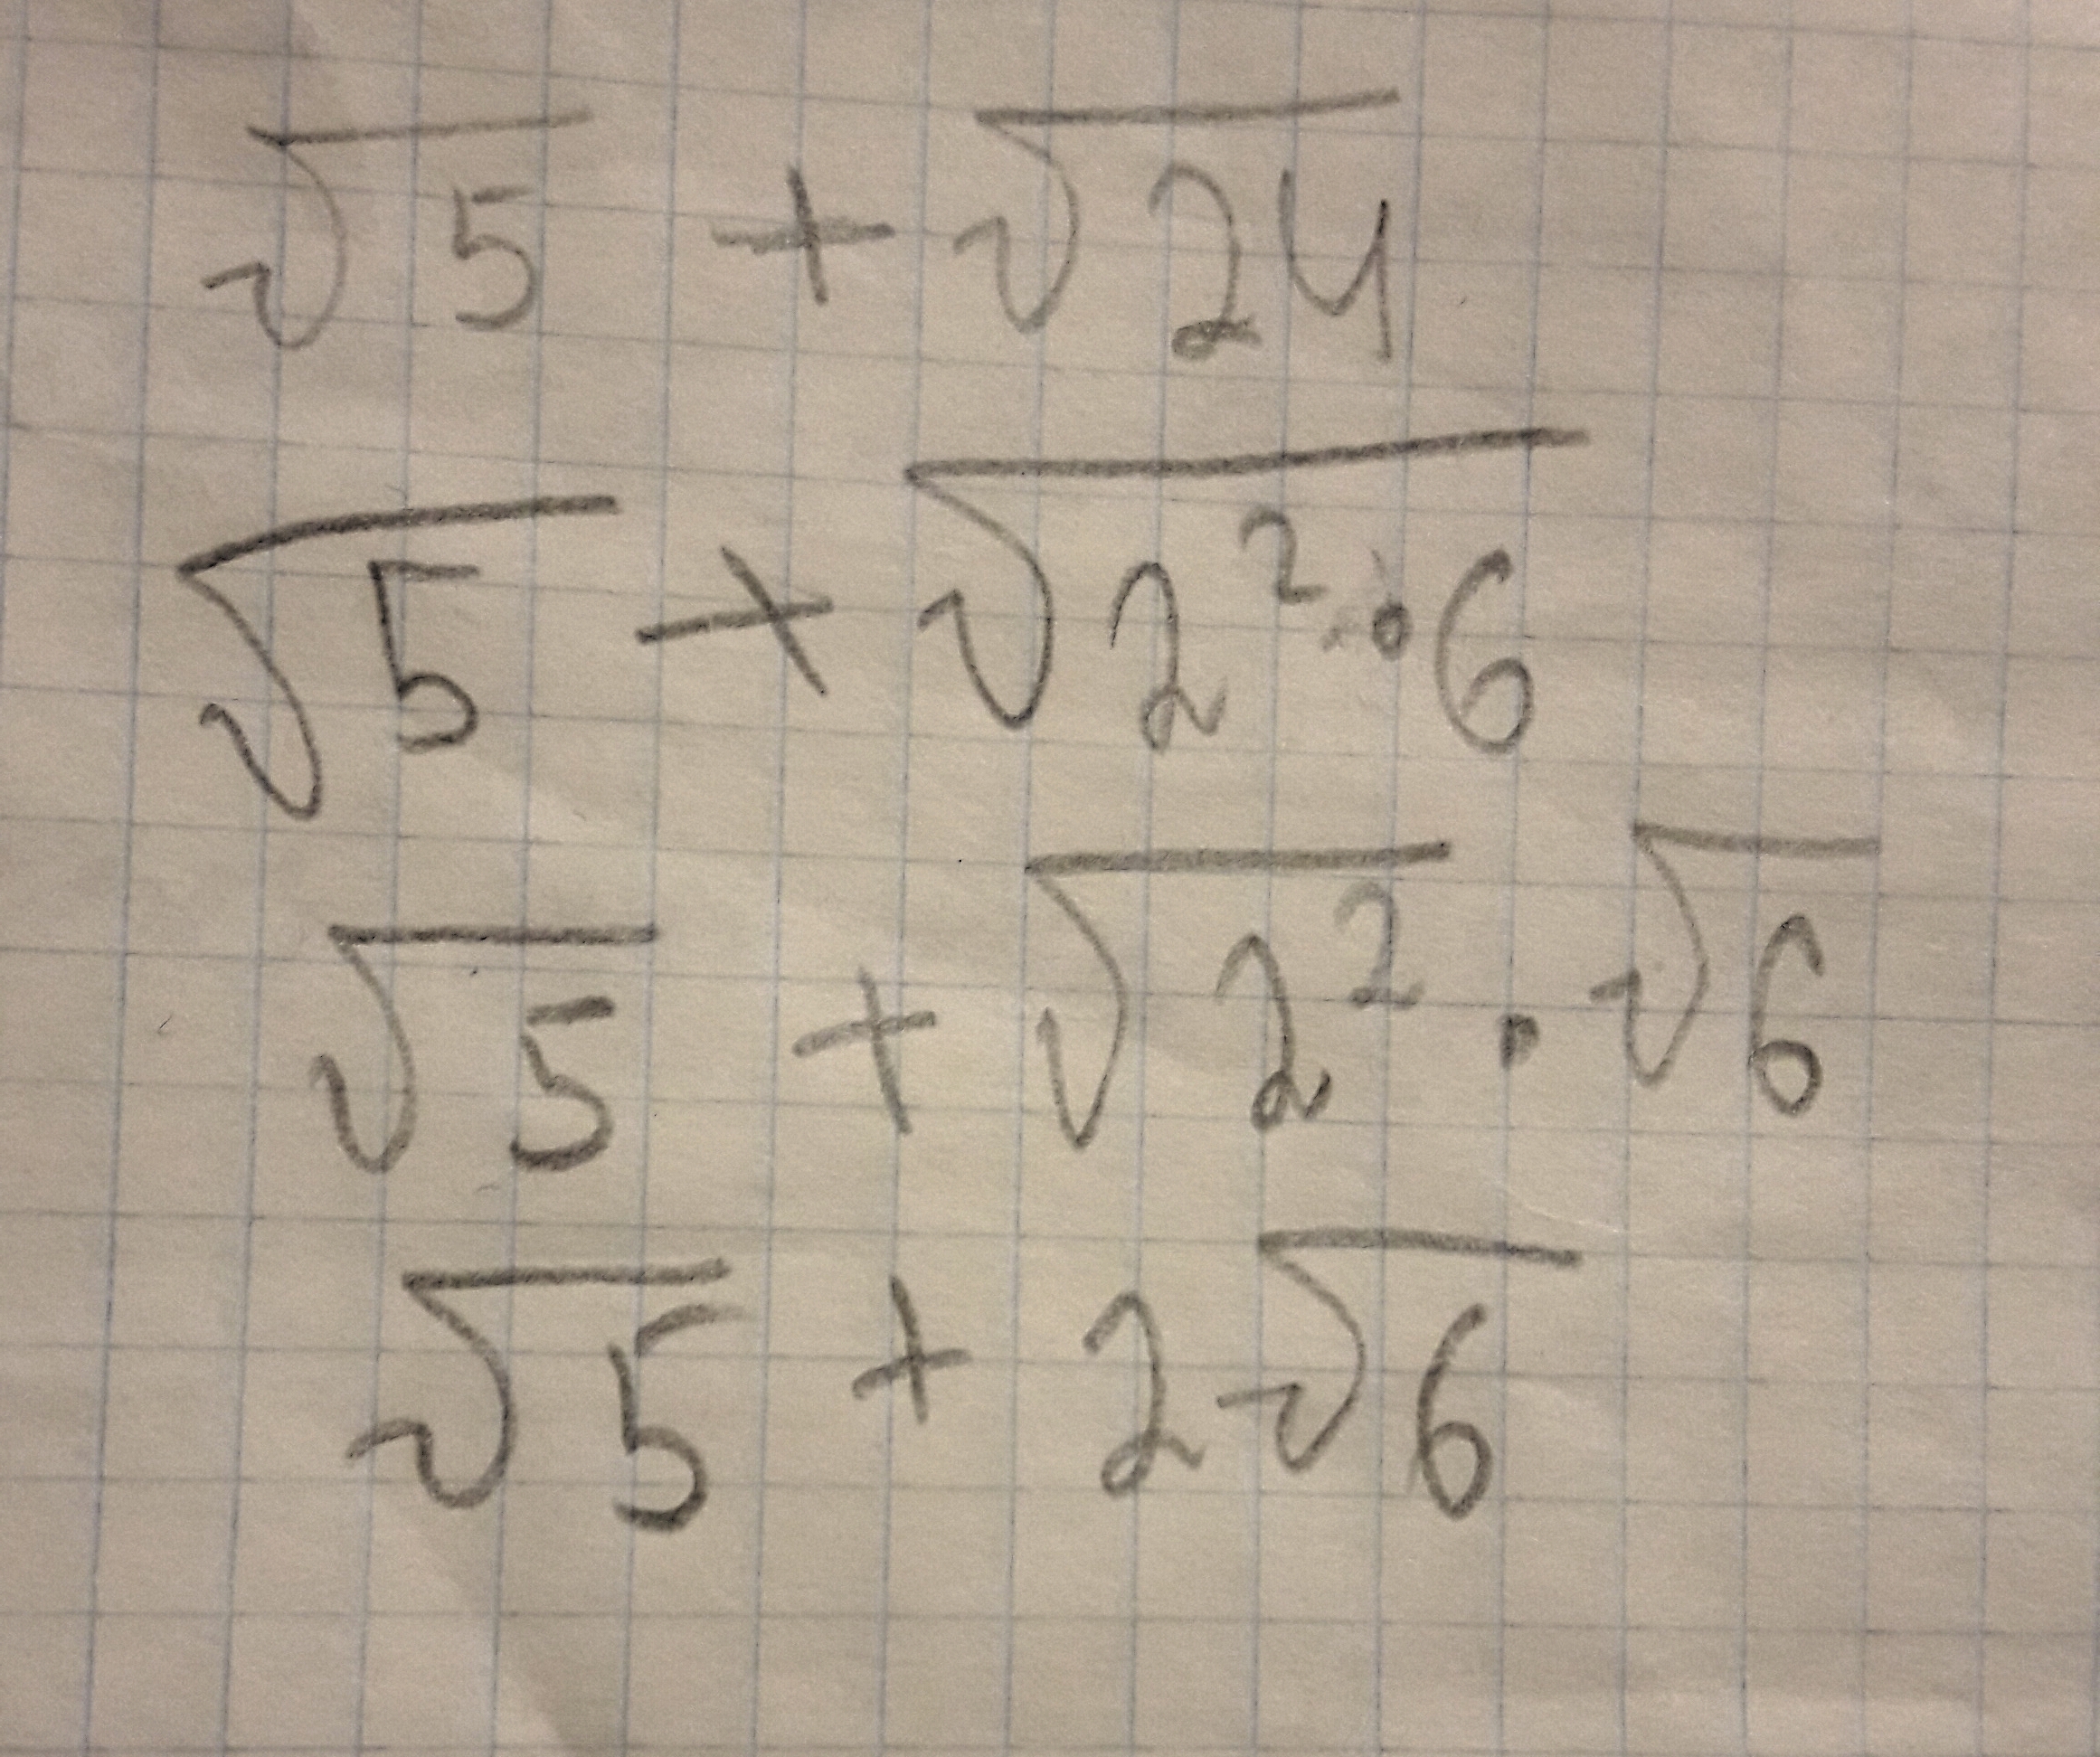 √5 + √24
√5 + √2²·6
√5 + √2² · √6
√5 + 2√6